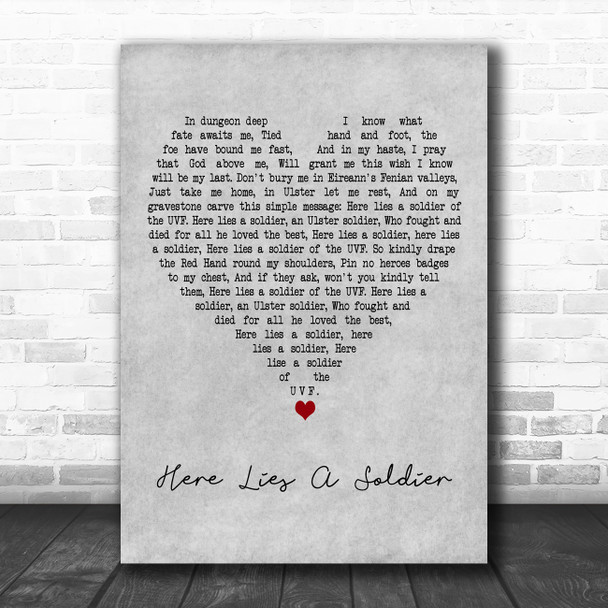 In dungeon deep I know what
fate awaits me, Tied hand and foot, the
foe have bound me fast, And in my haste, I pray
that God above me, Will grant me this wish I know
will be my last. Don't bury me in Eireann's Fenian valleys,
Just take me home, in Ulster let me rest, And on my
gravestone carve this simple message: Here lies a soldier of
the UVF. Here lies a soldier, an Ulster soldier, Who fought and
died for all he loved the best, Here lies a soldier, here lies
a soldier, Here lies a soldier of the UVF. So kindly drape
the Red Hand round my shoulders, Pin no heroes badges
to my chest, And if they ask, won't you kindly tell
them, Here lies a soldier of the UVF. Here lies a
soldier, an Ulster soldier, Who fought and
died for all he loved the best,
Here lies a soldier, here
lies a soldier, Here
lise a soldier
of the
UVF.
Here Lies A Soldier